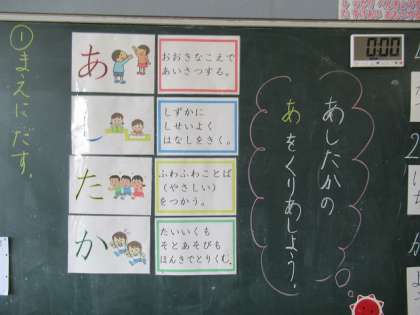 ①まえにだす。
あ
おおきなこえで
あいさつする。
し
しずかに
しせいよく
はなしをきく。
た
ふわふわことば
(やさしい)
をつかう。
か
たいいくも
そとあそびも
ほんきでとりくむ。
あしたかの
あをくりあしよう。
0:00